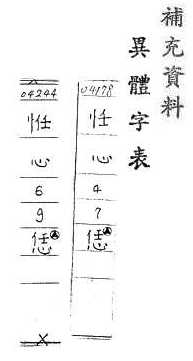 補充資料
異體字表
04178
心
4
7
恁
04244
心
6
9
恁